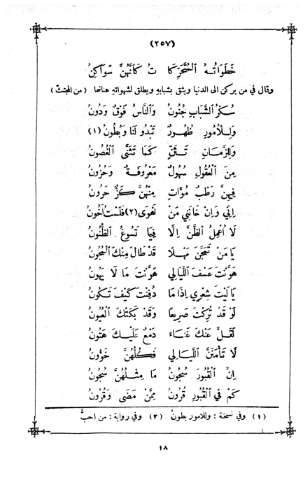 (٢٥٧)
خَطَوَاتُهُ الْمُتَحَرِّكَا تُ كَأَنَّهُنَّ سَوَاكِنُ
وقال في من يركن الى الدنيا ويثق بشبابه ويطلق لشهواته عنانها (من المجتث)
سُكْرُ الشَّبَابِ جُنُونُ وَالنَّاسُ فَوْقُ وَدُونُ
وَلِلْأُمُورِ ظُهُورٌ تَبْدُو لَنَا وَبُطُونُ (١)
وَلِلزَّمَانِ تَثَنٍّ كَمَا تَثَنَّى الْغُصُونُ
مِنَ الْعُقُولِ سُهُولٌ مَعْرُوفَةٌ وَحُزُونُ
فِيهِنَّ رَطْبٌ مُؤَاتٍ مِنْهُنَّ كَزٌّ حَرُونُ
إِنِّي وَإِنْ خَانَنِي مَنْ أَهْوَى (٢) فَلَسْتُ أَخُونُ
لَا أُعْمِلُ الظَّنَّ إِلَّا فِيمَا تَسُوغُ الظُّنُونُ
يَا مَنْ تَمَجَّنَ مَهْلًا قَدْ طَالَ مِنْكَ الْمُجُونُ
هَوَّنْتَ عَسْفَ اللَّيَالِي هَوَّنْتَ مَا لَا يَهُونُ
يَا لَيْتَ شِعْرِي إِذَا مَا دُفِنْتَ كَيْفَ تَكُونُ
لَوْ قَدْ تُرِكْتَ صَرِيعًا وَقَدْ بَكَتْكَ الْعُيُونُ
لَقَلَّ عَنْكَ غَنَاءً دَمْعٌ عَلَيْكَ هَتُونُ
لَا تَأْمَنَنَّ اللَّيَالِي فَكُلُّهُنَّ خَؤُونُ
إِنَّ الْقُبُورَ سُجُونٌ مَا مِثْلَهُنَّ سُجُونُ
كَمْ فِي الْقُبُورِ قُرُونٌ مِمَّنْ مَضَى وَقُرُونُ
(١) وفي نسخة : وللامور بطون (٢) وفي رواية : من احبُّ
١٨